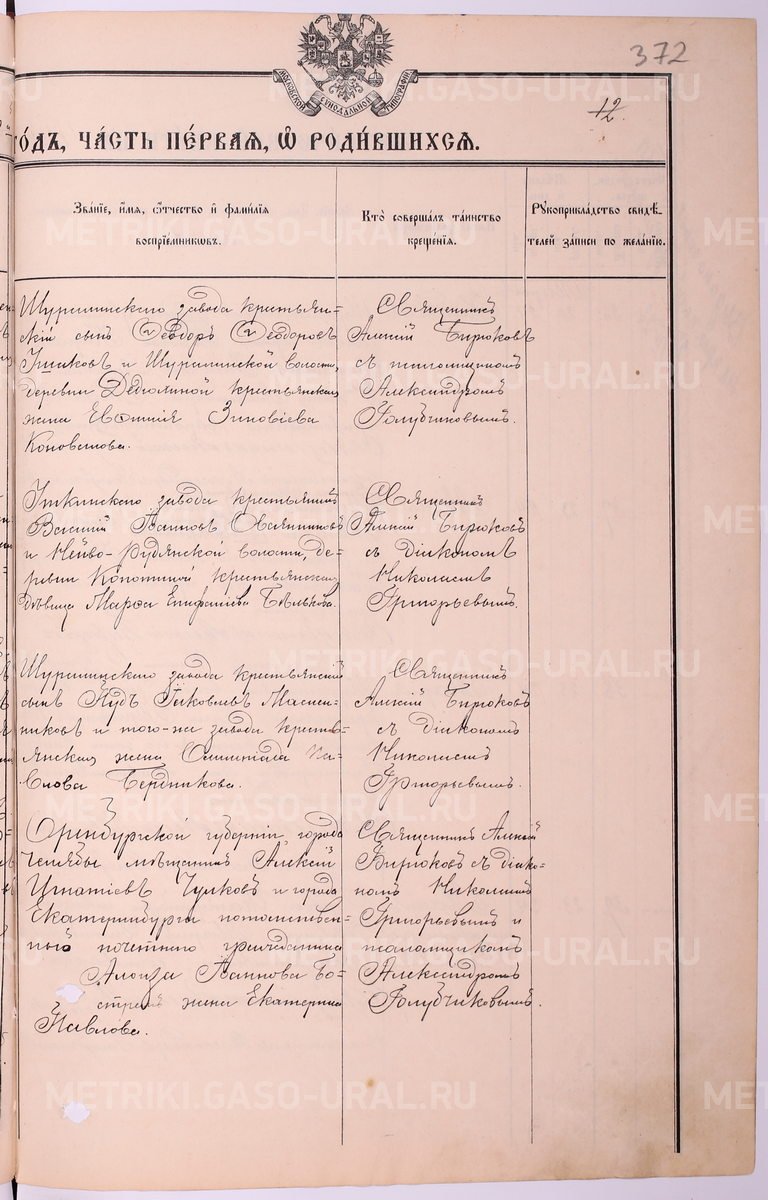 372
12.
МОСКОВСКОЙ СѴНОДАЛЬНОЙ ТИПОГРАФІИ
го́дъ, ча́сть пе́рвая, ѿ роди́вшихся.
Зва́нїе, и́мя, ѻ́тчество и҆ фами́лїя
воспрїе́мниковъ.
Кто̀ соверша́лъ та́инство
креще́нїя.
Рꙋкоприкла́дство свидѣ́-
телей за́писи по жела́нїю.
Шуралинскаго завода крестьян-
скій сынъ Ѳеодоръ Ѳеодоровъ
и Шуралинской волости,
деревни крестьянская
жена Евѳимія Зиновіева
Коновалова.
Священникъ
Алексій Бирюковъ
съ псаломщикомъ
Александромъ
Голубчиковымъ.
Уткинскаго завода крестьянинъ
Василій Іаковъ Овсянниковъ
и Нейво-Рудянской волости, де-
ревни Копотиной крестьянская
дѣвица Марѳа Епифаніева Бѣлькова.
Священникъ
Алексій Бирюковъ
съ діакономъ
Николаемъ
Григорьевымъ.
Шуралинскаго завода крестьянскій
сынъ Іаковлевъ Маслен-
никовъ и того-же завода кресть-
янская жена Олимпіада Па-
влова Бердникова.
Священникъ
Алексій Бирюковъ
съ діакономъ
Николаемъ
Григорьевымъ.
Оренбургской губерніи города
Челябы мѣщанинъ Алексій
Игнатіевъ Чулковъ и города
Екатеринбурга потомствен-
наго почетнаго гражданина
Алоиза Іаннова
жена Екатерина
Павлова.
Священникъ Алексій
Бирюковъ съ діако-
номъ Николаемъ
Григорьевымъ и
псаломщикомъ
Александромъ
Голубчиковымъ.
METRIKI.GASO-URAL.RU